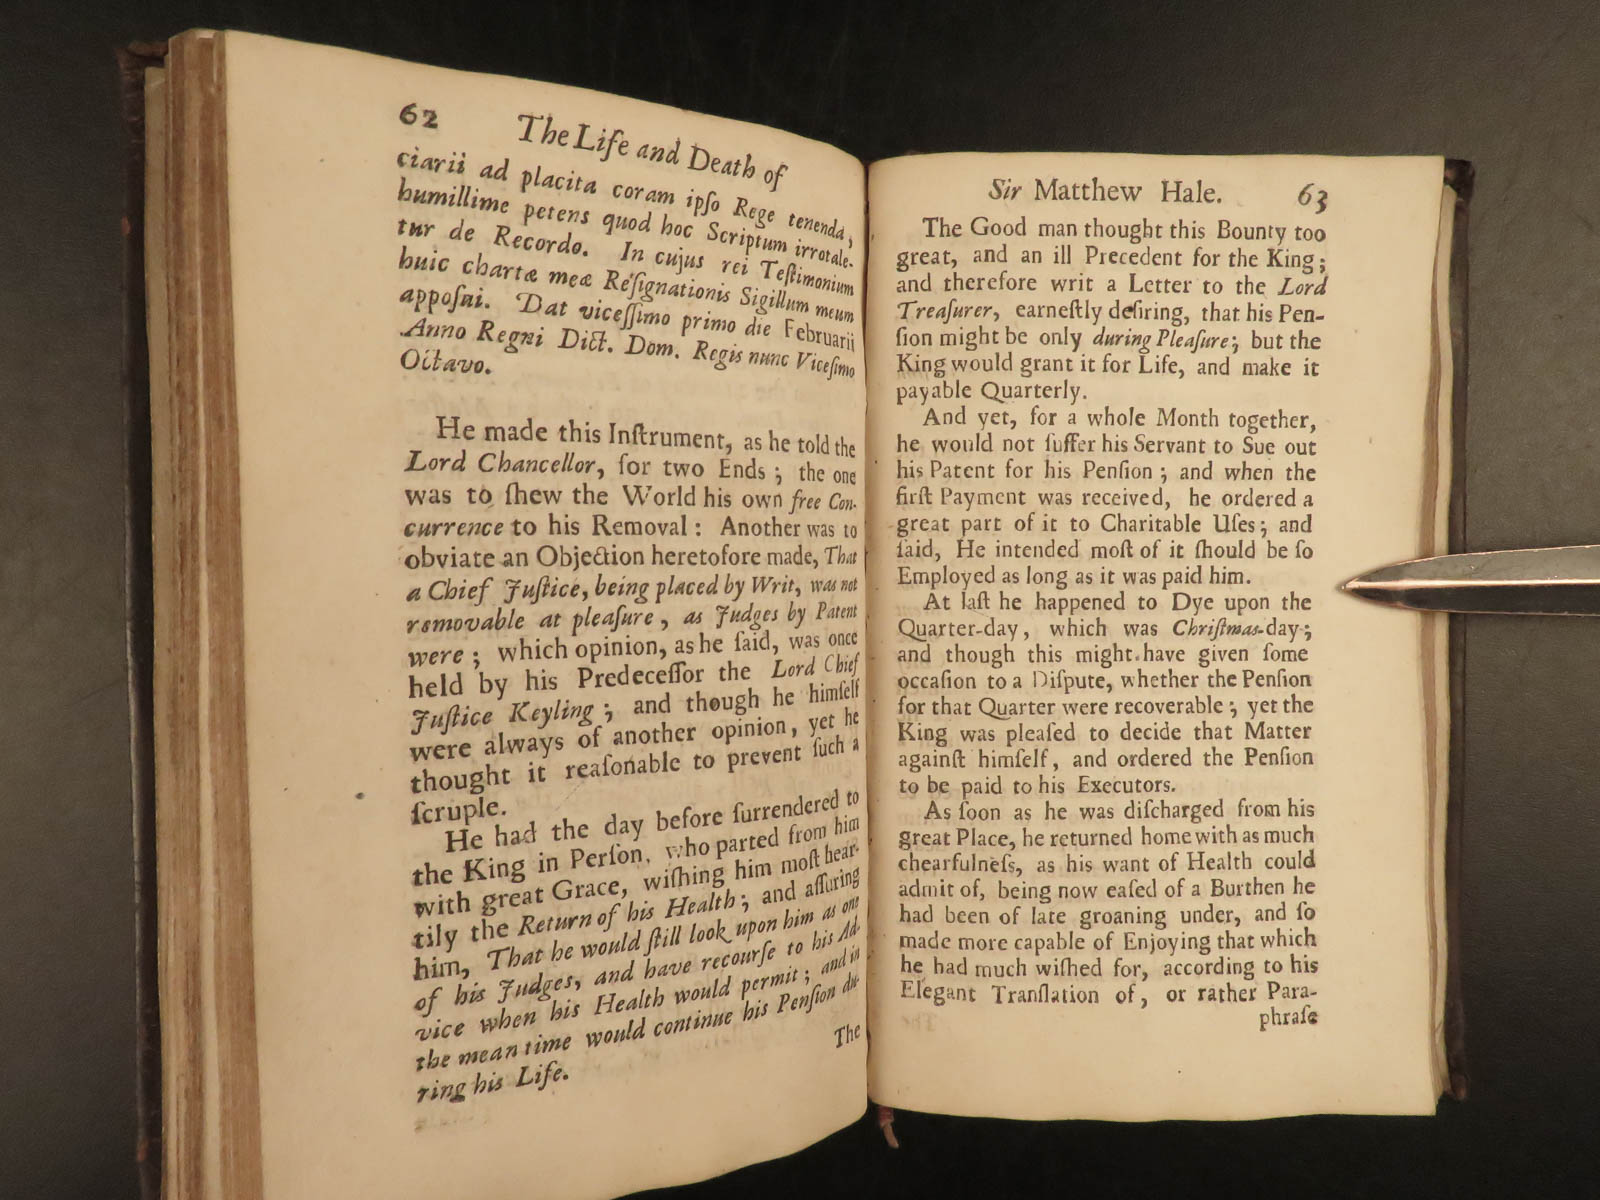 62
The Life and Death of
ciarii ad placita coram ipſo Rege tenenda,
humillime petens quod hoc Scriptum irrotale-
tur de Recordo. In cujus rei Teſtimonium
huic chartæ meæ Reſignationis Sigillum meum
appoſui. Dat viceſſimo primo die Februarii
Anno Regni Dict. Dom. Regis nunc Viceſimo
Octavo.
He made this Inſtrument, as he told the
Lord Chancellor, for two Ends; the one
was to ſhew the World his own free Con-
currence to his Removal: Another was to
obviate an Objection heretofore made, That
a Chief Juſtice, being placed by Writ, was not
removable at pleaſure, as Judges by Patent
were; which opinion, as he ſaid, was once
held by his Predeceſſor the Lord Chief
Juſtice Keyling; and though he himſelf
were always of another opinion, yet he
thought it reaſonable to prevent ſuch a
ſcruple.
He had the day before ſurrendered to
the King in Perſon, who parted from him
with great Grace, wiſhing him moſt hear-
tily the Return of his Health; and aſſuring
him, That he would ſtill look upon him as one
of his Judges, and have recourſe to his Ad-
vice when his Health would permit; and in
the mean time would continue his Penſion du-
ring his Life.
The
Sir Matthew Hale. 63
The Good man thought this Bounty too
great, and an ill Precedent for the King;
and therefore writ a Letter to the Lord
Treaſurer, earneſtly deſiring, that his Pen-
ſion might be only during Pleaſure; but the
King would grant it for Life, and make it
payable Quarterly.
And yet, for a whole Month together,
he would not ſuffer his Servant to Sue out
his Patent for his Penſion; and when the
firſt Payment was received, he ordered a
great part of it to Charitable Uſes; and
ſaid, He intended moſt of it ſhould be ſo
Employed as long as it was paid him.
At laſt he happened to Dye upon the
Quarter-day, which was Chriſtmas-day;
and though this might have given ſome
occaſion to a Diſpute, whether the Penſion
for that Quarter were recoverable; yet the
King was pleaſed to decide that Matter
againſt himſelf, and ordered the Penſion
to be paid to his Executors.
As ſoon as he was diſcharged from his
great Place, he returned home with as much
chearfulneſs, as his want of Health could
admit of, being now eaſed of a Burthen he
had been of late groaning under, and ſo
made more capable of Enjoying that which
he had much wiſhed for, according to his
Elegant Tranſlation of, or rather Para-
phraſe